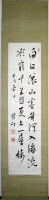 白日依山尽黄河入海流
欲窮千里目更上一層楼